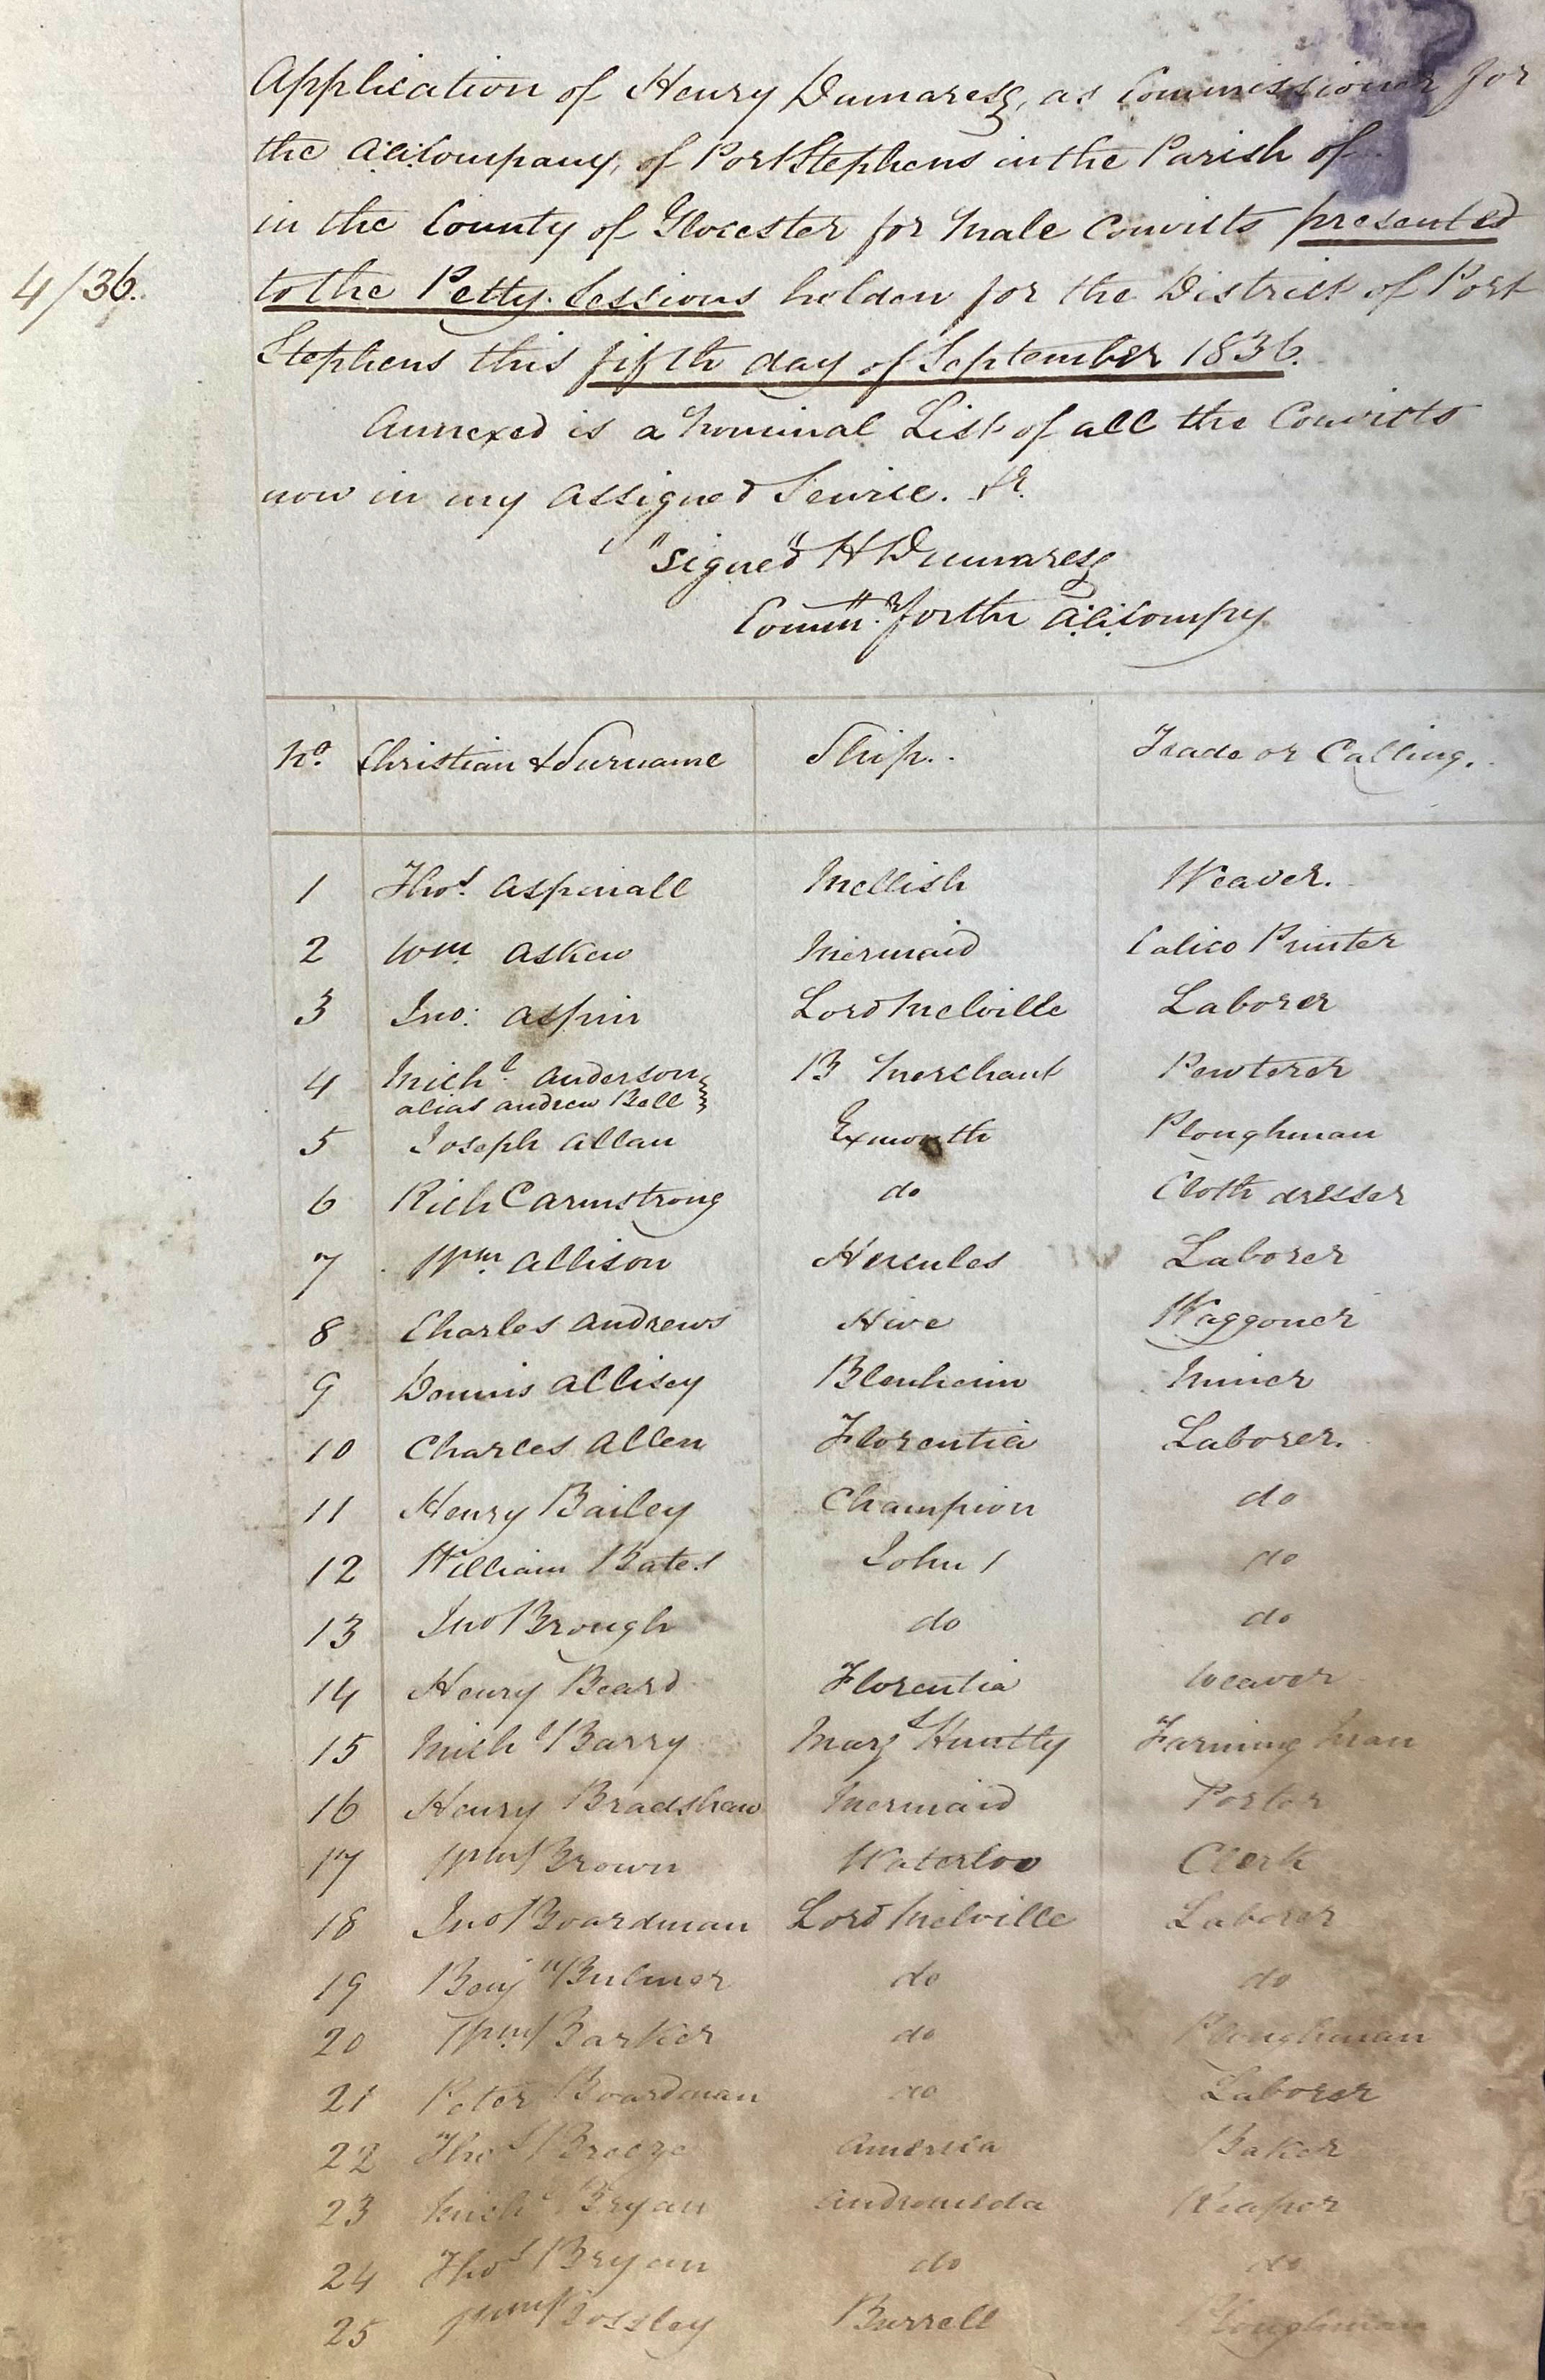 Application of Henry Dumaresq, as Commissioner for
the A.A.Company, of Port Stephens in the Parish of
in the County of Glocester for Male Convicts presented
4/36. to the Petty Sessions holden for the District of Port
Stephens this fifth day of September 1836.
Annexed is a Nominal List of all the Convicts
now in my Assigned Service. &c.
"Signed" H Dumaresq
Commr. for the A.A.Compy.
No. Christian & Surname Ship.. Trade or Calling.
1 Thos. Aspinall Mellish Weaver.
2 Wm. Askew Mermaid Calico Printer
3 Jno: Aspin Lord Melville Laborer
4 Michl. Anderson B Merchant Pewterer
alias Andrew Bell
5 Joseph Allan Exmouth Ploughman
6 Rich Carmstrong do Cloth dresser
7 Wm. Allison Hercules Laborer
8 Charles Andrews Hive Waggoner
9 Dennis Allisey Blenheim Miner
10 Charles Allen Florentia Laborer.
11 Henry Bailey Champion do
12 William Bates John 1 do
13 Jno Brough do do
14 Henry Beard Florentia Weaver
15 Michl Barry Marqs Huntly Farming Man
16 Henry Bradshaw Mermaid Porter
17 Wm Brown Waterloo Clerk
18 Jno Boardman Lord Melville Laborer
19 Benjn Bulmer do do
20 Wm Barker do Ploughman
21 Peter Boardman do Laborer
22 Thos Breeze America Baker
23 Michl Bryan Andromeda Reaper
24 Thos Bryan do do
25 Wm Bossley Burrell Ploughman